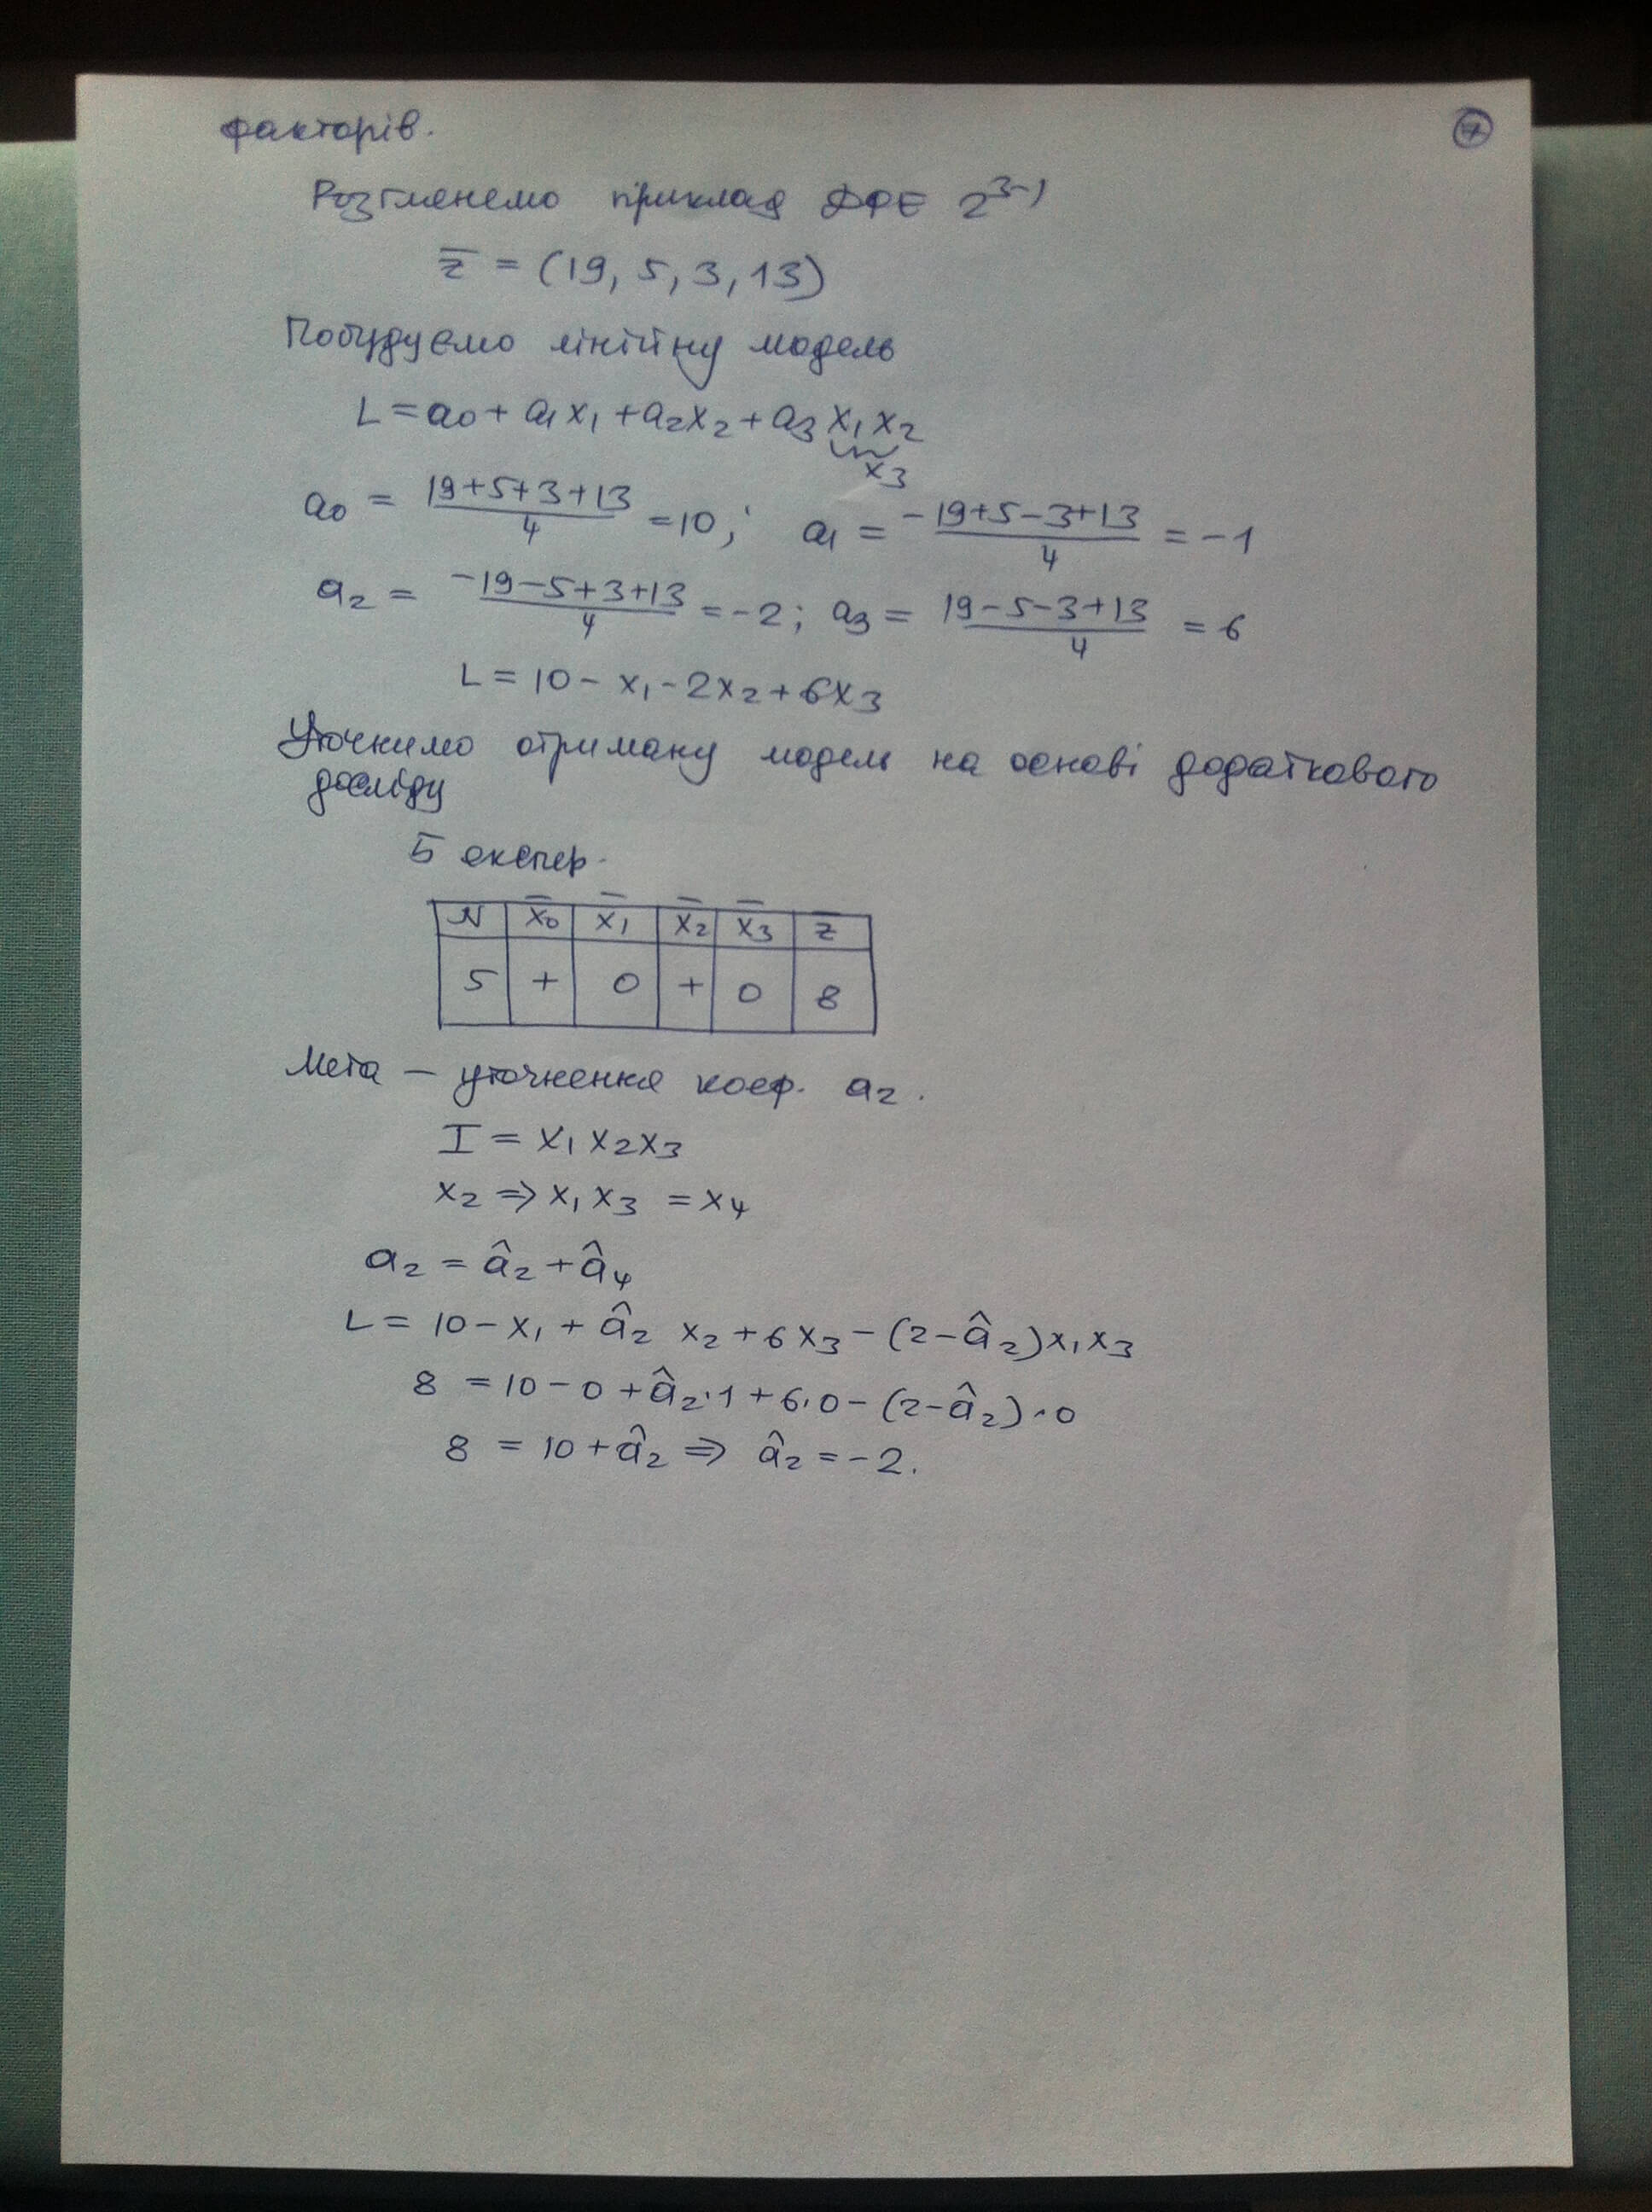 факторів.
7
Розглянемо приклад ДФЕ 2^{3-1}
z̅ = (19, 5, 3, 13)
Побудуємо лінійну модель
L = a0 + a1x1 + a2x2 + a3x1x2
x3
a0 = (19+5+3+13)/4 = 10; a1 = (-19+5-3+13)/4 = -1
a2 = (-19-5+3+13)/4 = -2; a3 = (19-5-3+13)/4 = 6
L = 10 - x1 - 2x2 + 6x3
Уточнимо отриману модель на основі додаткового
досліду
5 експер.
N x̅0 x̅1 x̅2 x̅3 z̅
5 + 0 + 0 8
Мета — уточнення коеф. a2.
I = x1x2x3
x2 ⇒ x1x3 = x4
a2 = â2 + â4
L = 10 - x1 + â2 x2 + 6x3 - (2-â2)x1x3
8 = 10 - 0 + â2·1 + 6·0 - (2-â2)·0
8 = 10 + â2 ⇒ â2 = -2.